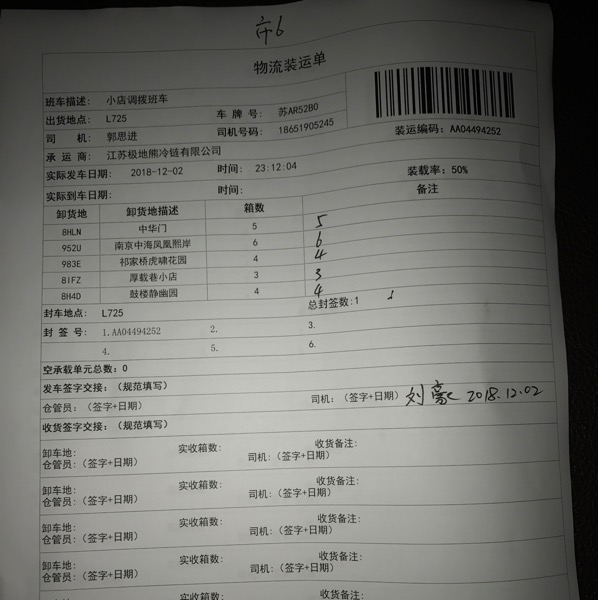 市6
物流装运单
班车描述： 小店调拨班车
出货地点： L725 车 牌 号： 苏AR52B0
司 机： 郭思进 司机号码： 18651905245 装运编码：AA04494252
承 运 商： 江苏极地熊冷链有限公司
实际发车日期： 2018-12-02 时间： 23:12:04 装载率：50%
实际到车日期： 时间： 备注
卸货地 卸货地描述 箱数
8HLN 中华门 5 5
952U 南京中海凤凰熙岸 6 6
983E 祁家桥虎啸花园 4 4
8IFZ 厚载巷小店 3 3
8H4D 鼓楼静幽园 4 4
封车地点： L725 总封签数：1
封 签 号： 1.AA04494252 2. 3.
4. 5. 6.
空承载单元总数：0
发车签字交接：（规范填写）
仓管员：（签字+日期） 司机：（签字+日期） 刘豪 2018.12.02
收货签字交接：（规范填写）
卸车地： 实收箱数： 收货备注：
仓管员：（签字+日期） 司机：（签字+日期）
卸车地： 实收箱数： 收货备注：
仓管员：（签字+日期） 司机：（签字+日期）
卸车地： 实收箱数： 收货备注：
仓管员：（签字+日期） 司机：（签字+日期）
卸车地： 实收箱数： 收货备注：
仓管员：（签字+日期） 司机：（签字+日期）
卸车地： 实收箱数： 收货备注：